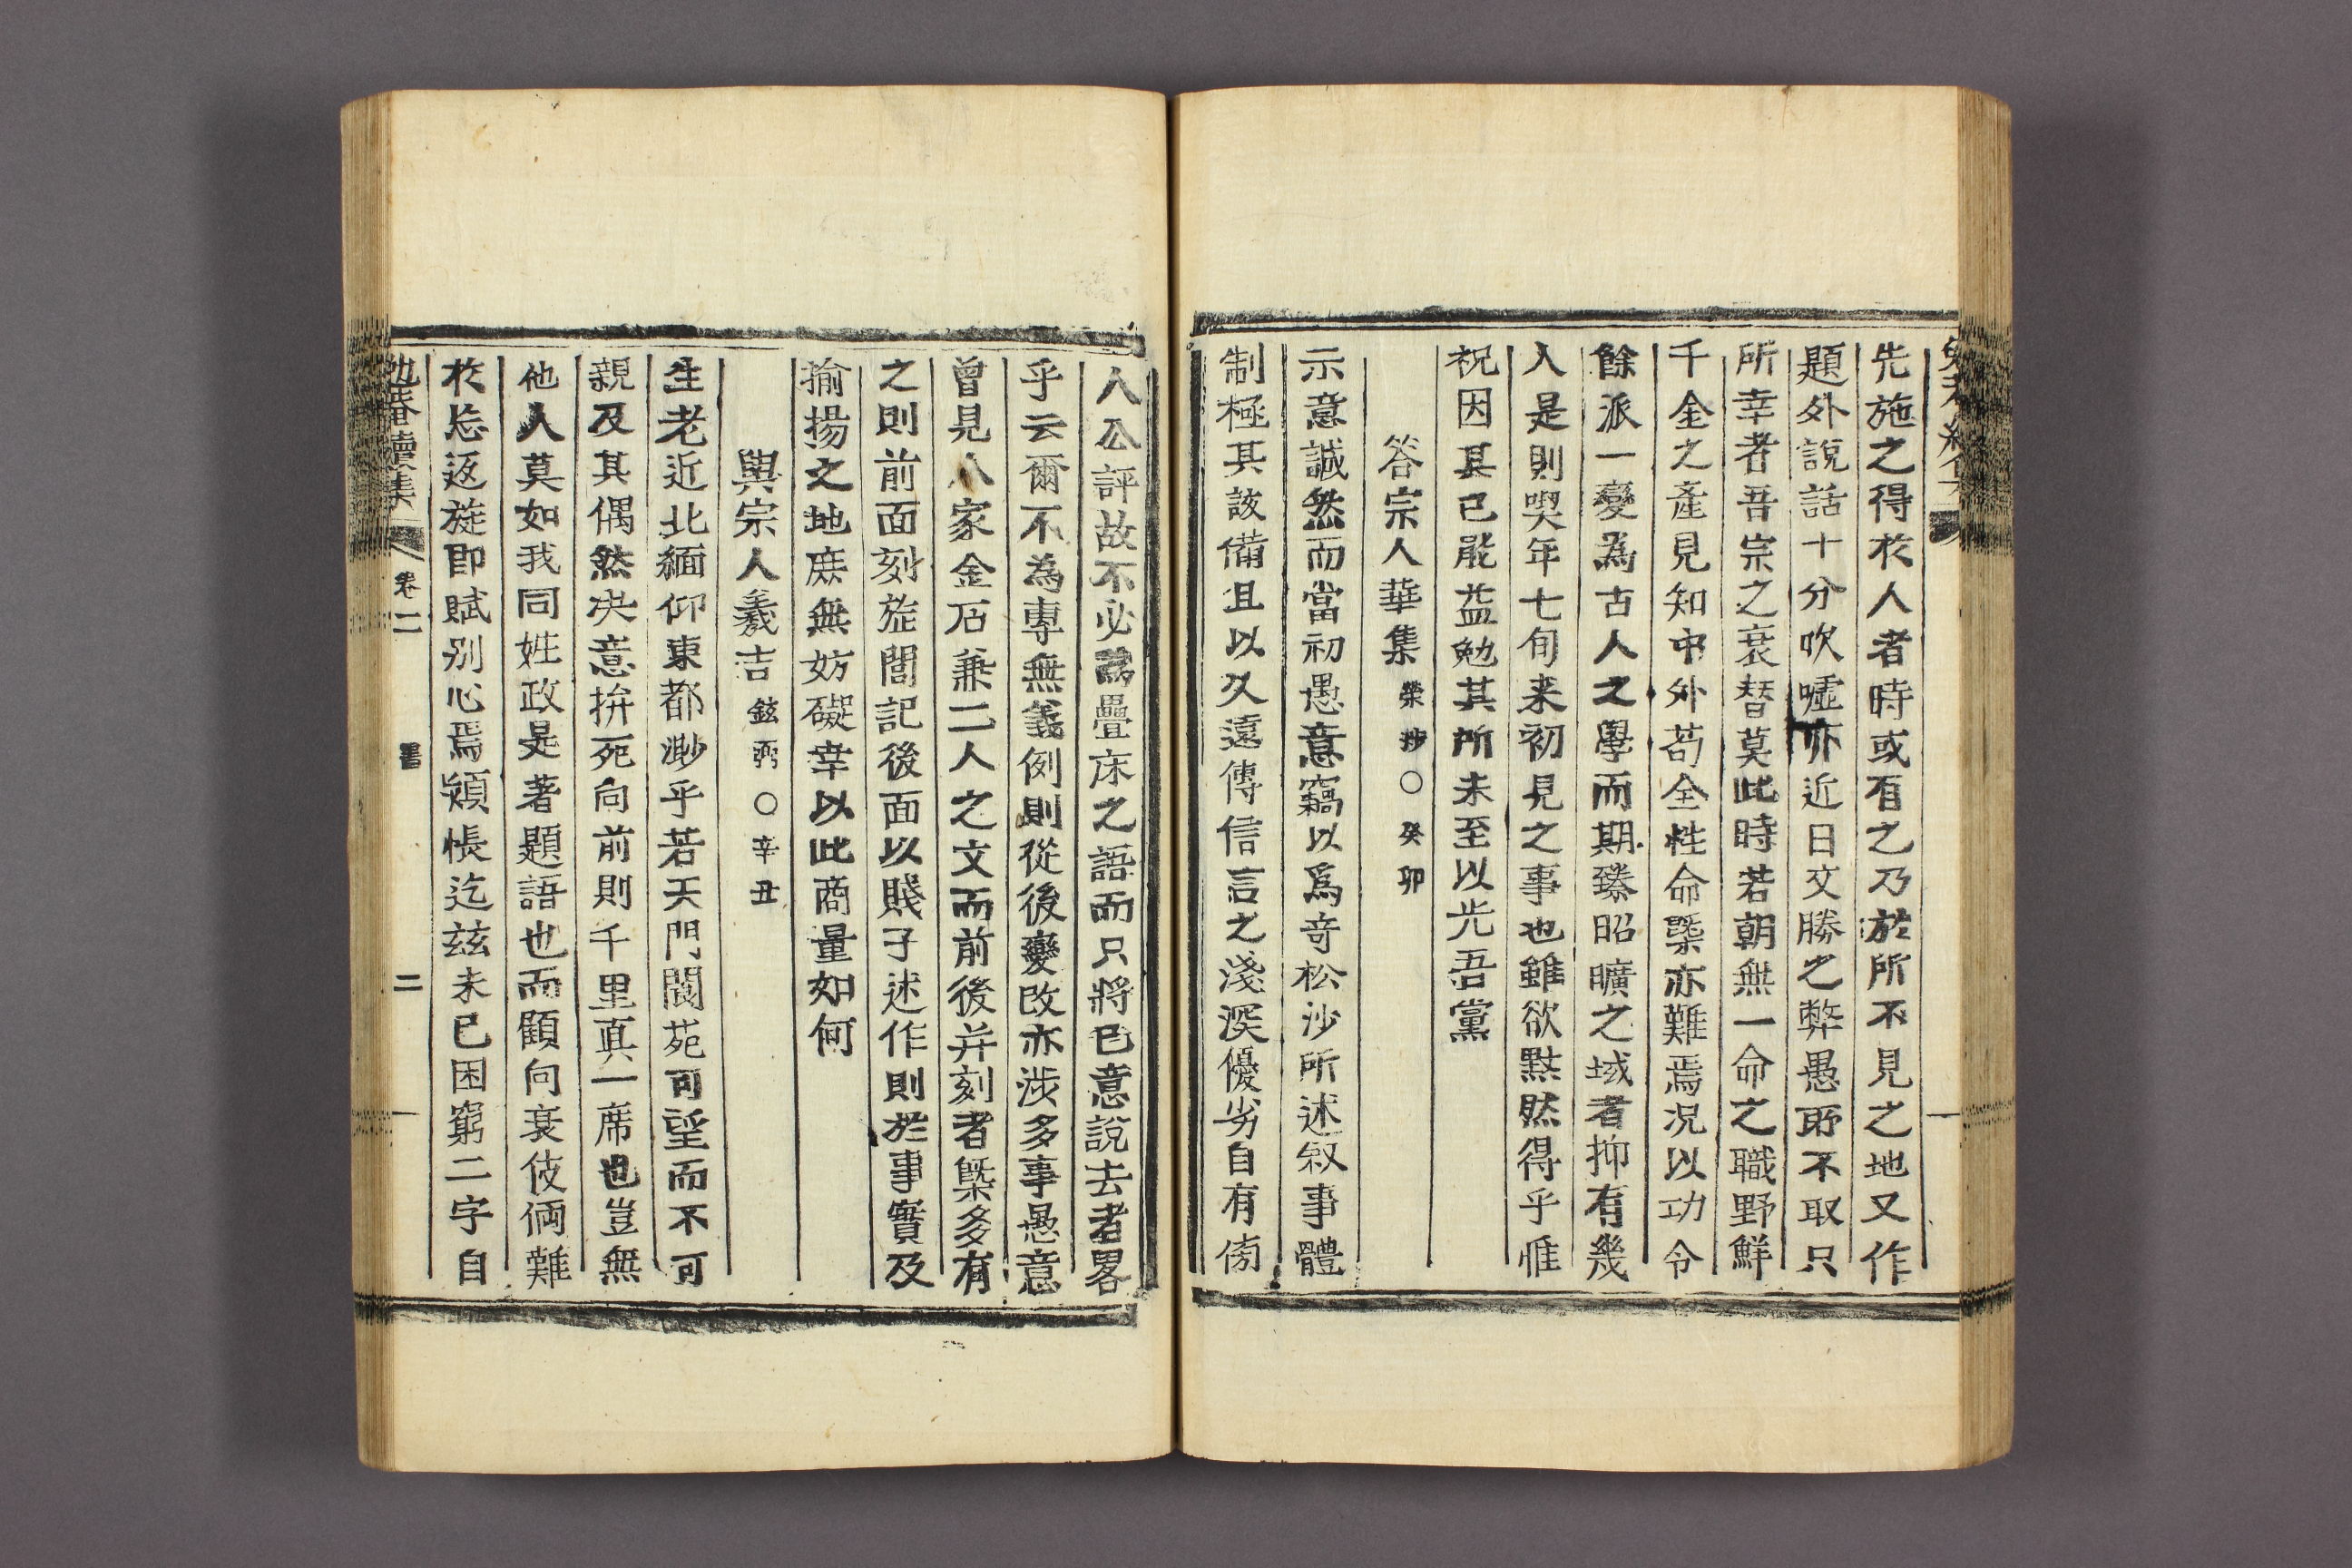 先施之得於人者時或有之乃於所不見之地又作
題外說話十分吹噓亦近日文勝之弊愚所不取只
所幸者吾宗之衰替莫此時若朝無一命之職野鮮
千金之產見知中外苟全性命槩亦難焉况以功令
餘派一變為古人之學而期臻昭曠之域者抑有幾
人是則喫年七旬来初見之事也雖欲黙然得乎惟
祝因其已能益勉其所未至以光吾黨
答宗人華集 榮抄○癸卯
示意誠然而當初愚意竊以爲奇松沙所述叙事體
制極其該備且以久遠傳信言之淺深優劣自有傍
人公評故不必為疊床之語而只將已意說去者畧
乎云爾不為專無義例則從後變改亦涉多事愚意
曾見八家金石兼二人之文而前後并刻者槩多有
之則前面刻旌閭記後面以賤子述作則於事實及
揄揚之地庶無妨礙幸以此商量如何
與宗人羲吉 鉉弼○辛丑
生老近北緬仰東都渺乎若天門閬苑可望而不可
親及其偶然决意拚死向前則千里真一席也豈無
他人莫如我同姓政是著題語也而顧向衰伎倆難
於㤀返旋即賦别心焉䫉悵迄兹未已困窮二字自
續集 卷二 書 二